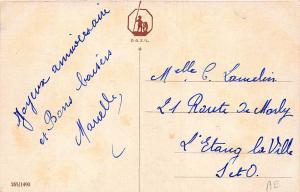 Joyeux anniversaire
et Bons baisers
Marcelle
D.G.Z.L.
Melle C. Lamelin
21 Route de Marly
L'Etang la Ville
S et O.
285/1493
AE